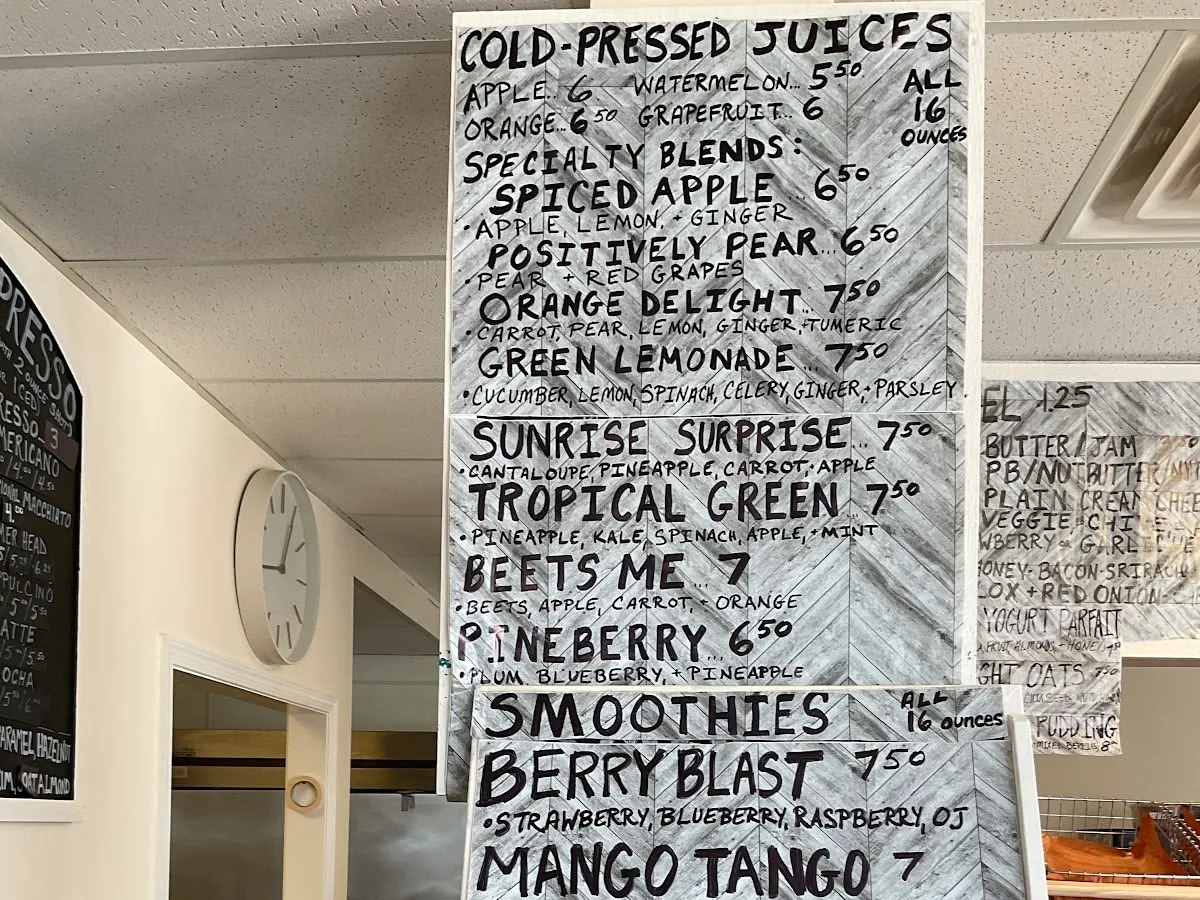 COLD-PRESSED JUICES
APPLE.. 6 WATERMELON... 5 50
ORANGE... 6 50 GRAPEFRUIT... 6
ALL
16
OUNCES
SPECIALTY BLENDS:
SPICED APPLE .. 6 50
• APPLE, LEMON, + GINGER
POSITIVELY PEAR... 6 50
• PEAR + RED GRAPES
ORANGE DELIGHT... 7 50
• CARROT, PEAR, LEMON, GINGER, +TUMERIC
GREEN LEMONADE... 7 50
• CUCUMBER, LEMON, SPINACH, CELERY, GINGER, + PARSLEY
SUNRISE SURPRISE... 7 50
• CANTALOUPE, PINEAPPLE, CARROT, + APPLE
TROPICAL GREEN... 7 50
• PINEAPPLE, KALE, SPINACH, APPLE, + MINT
BEETS ME... 7
• BEETS, APPLE, CARROT, + ORANGE
PINEBERRY... 6 50
• PLUM, BLUEBERRY, + PINEAPPLE
SMOOTHIES
ALL
16 OUNCES
BERRY BLAST 7 50
• STRAWBERRY, BLUEBERRY, RASPBERRY, OJ
MANGO TANGO 7
PRESSO
2 OUNCE
ICED)
RESSO... 3
MERICANO
MACCHIATO
HEAD
PUCCINO
ATTE
OCHA
CARAMEL, HAZELNUT
OAT, ALMOND
EL 1.25
BUTTER/JAM
PB/NUTBUTTER
PLAIN CREAM CHEE
VEGGIE
ONEY-BACON-SRIRACH
LOX + RED ONION
YOGURT PARFAIT
GHT OATS 7 50
PUDDING